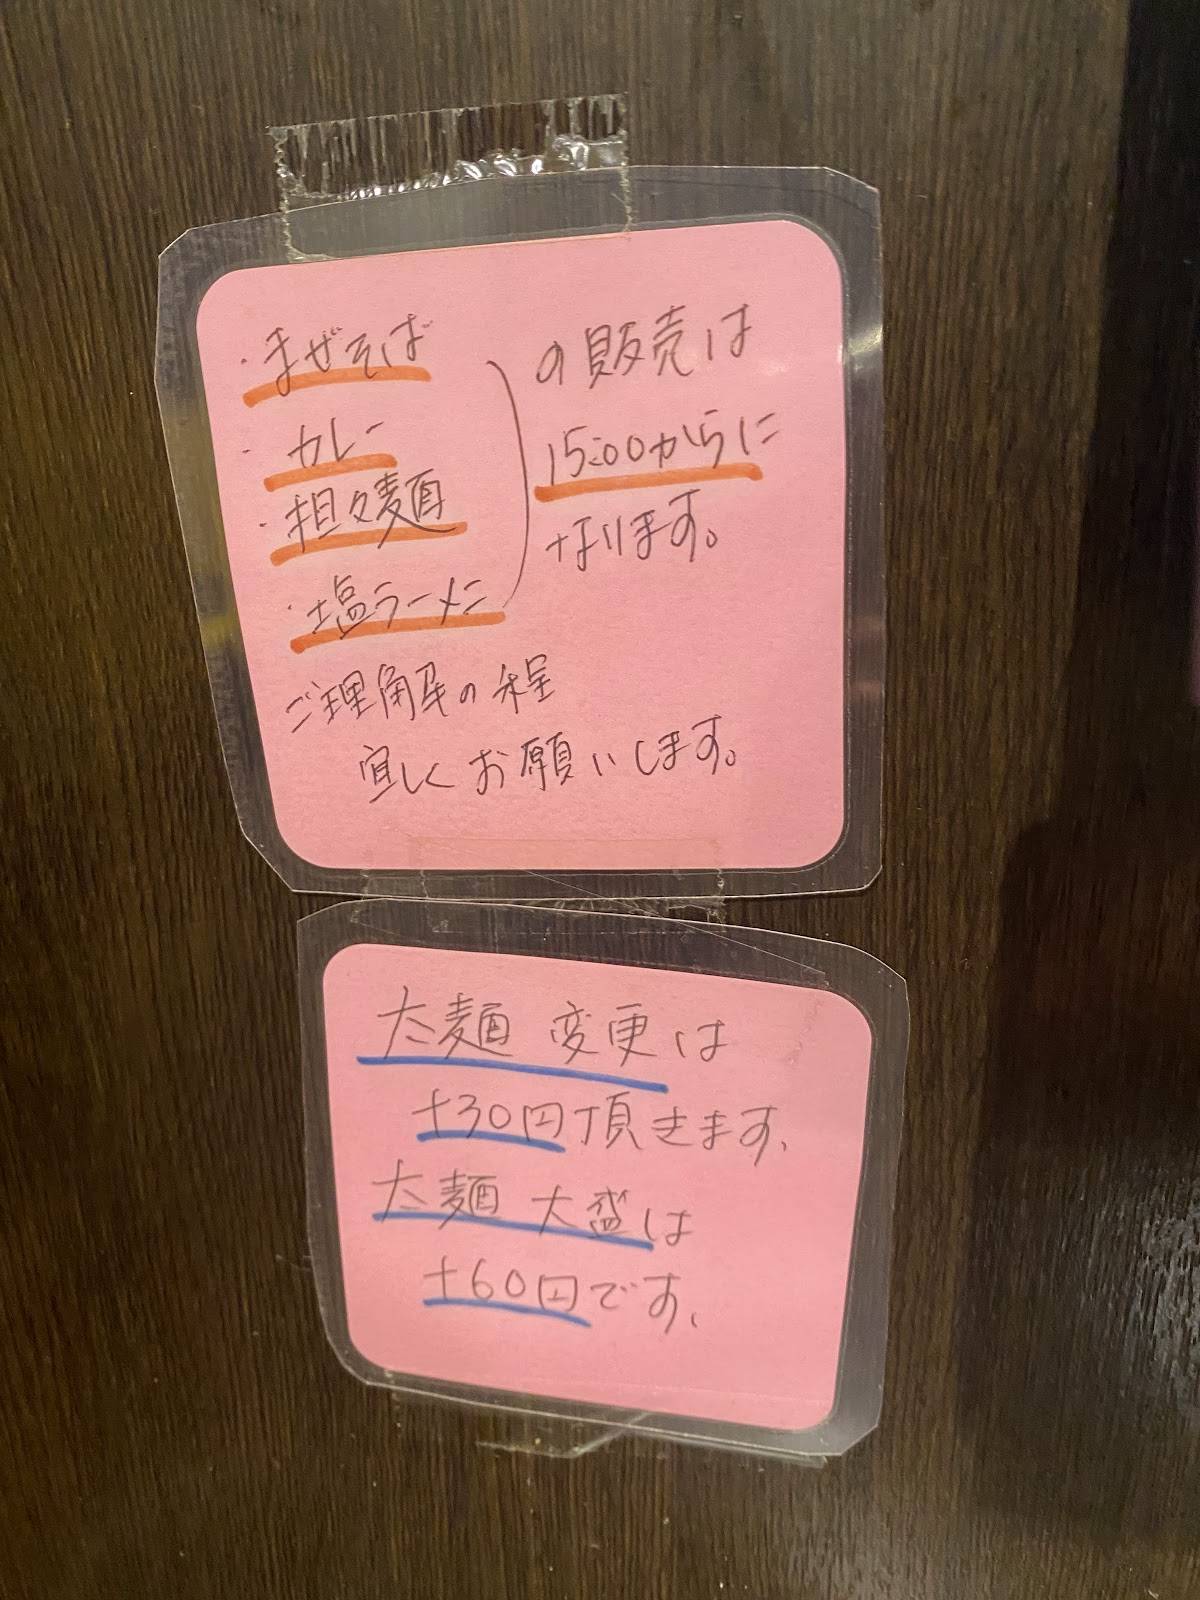 ・まぜそば
・カレー
・担々麺
・塩ラーメン
の販売は
15:00からに
なります。
ご理解の程
宜しくお願いします。
太麺 変更は
+30円頂きます、
太麺 大盛は
+60円です、